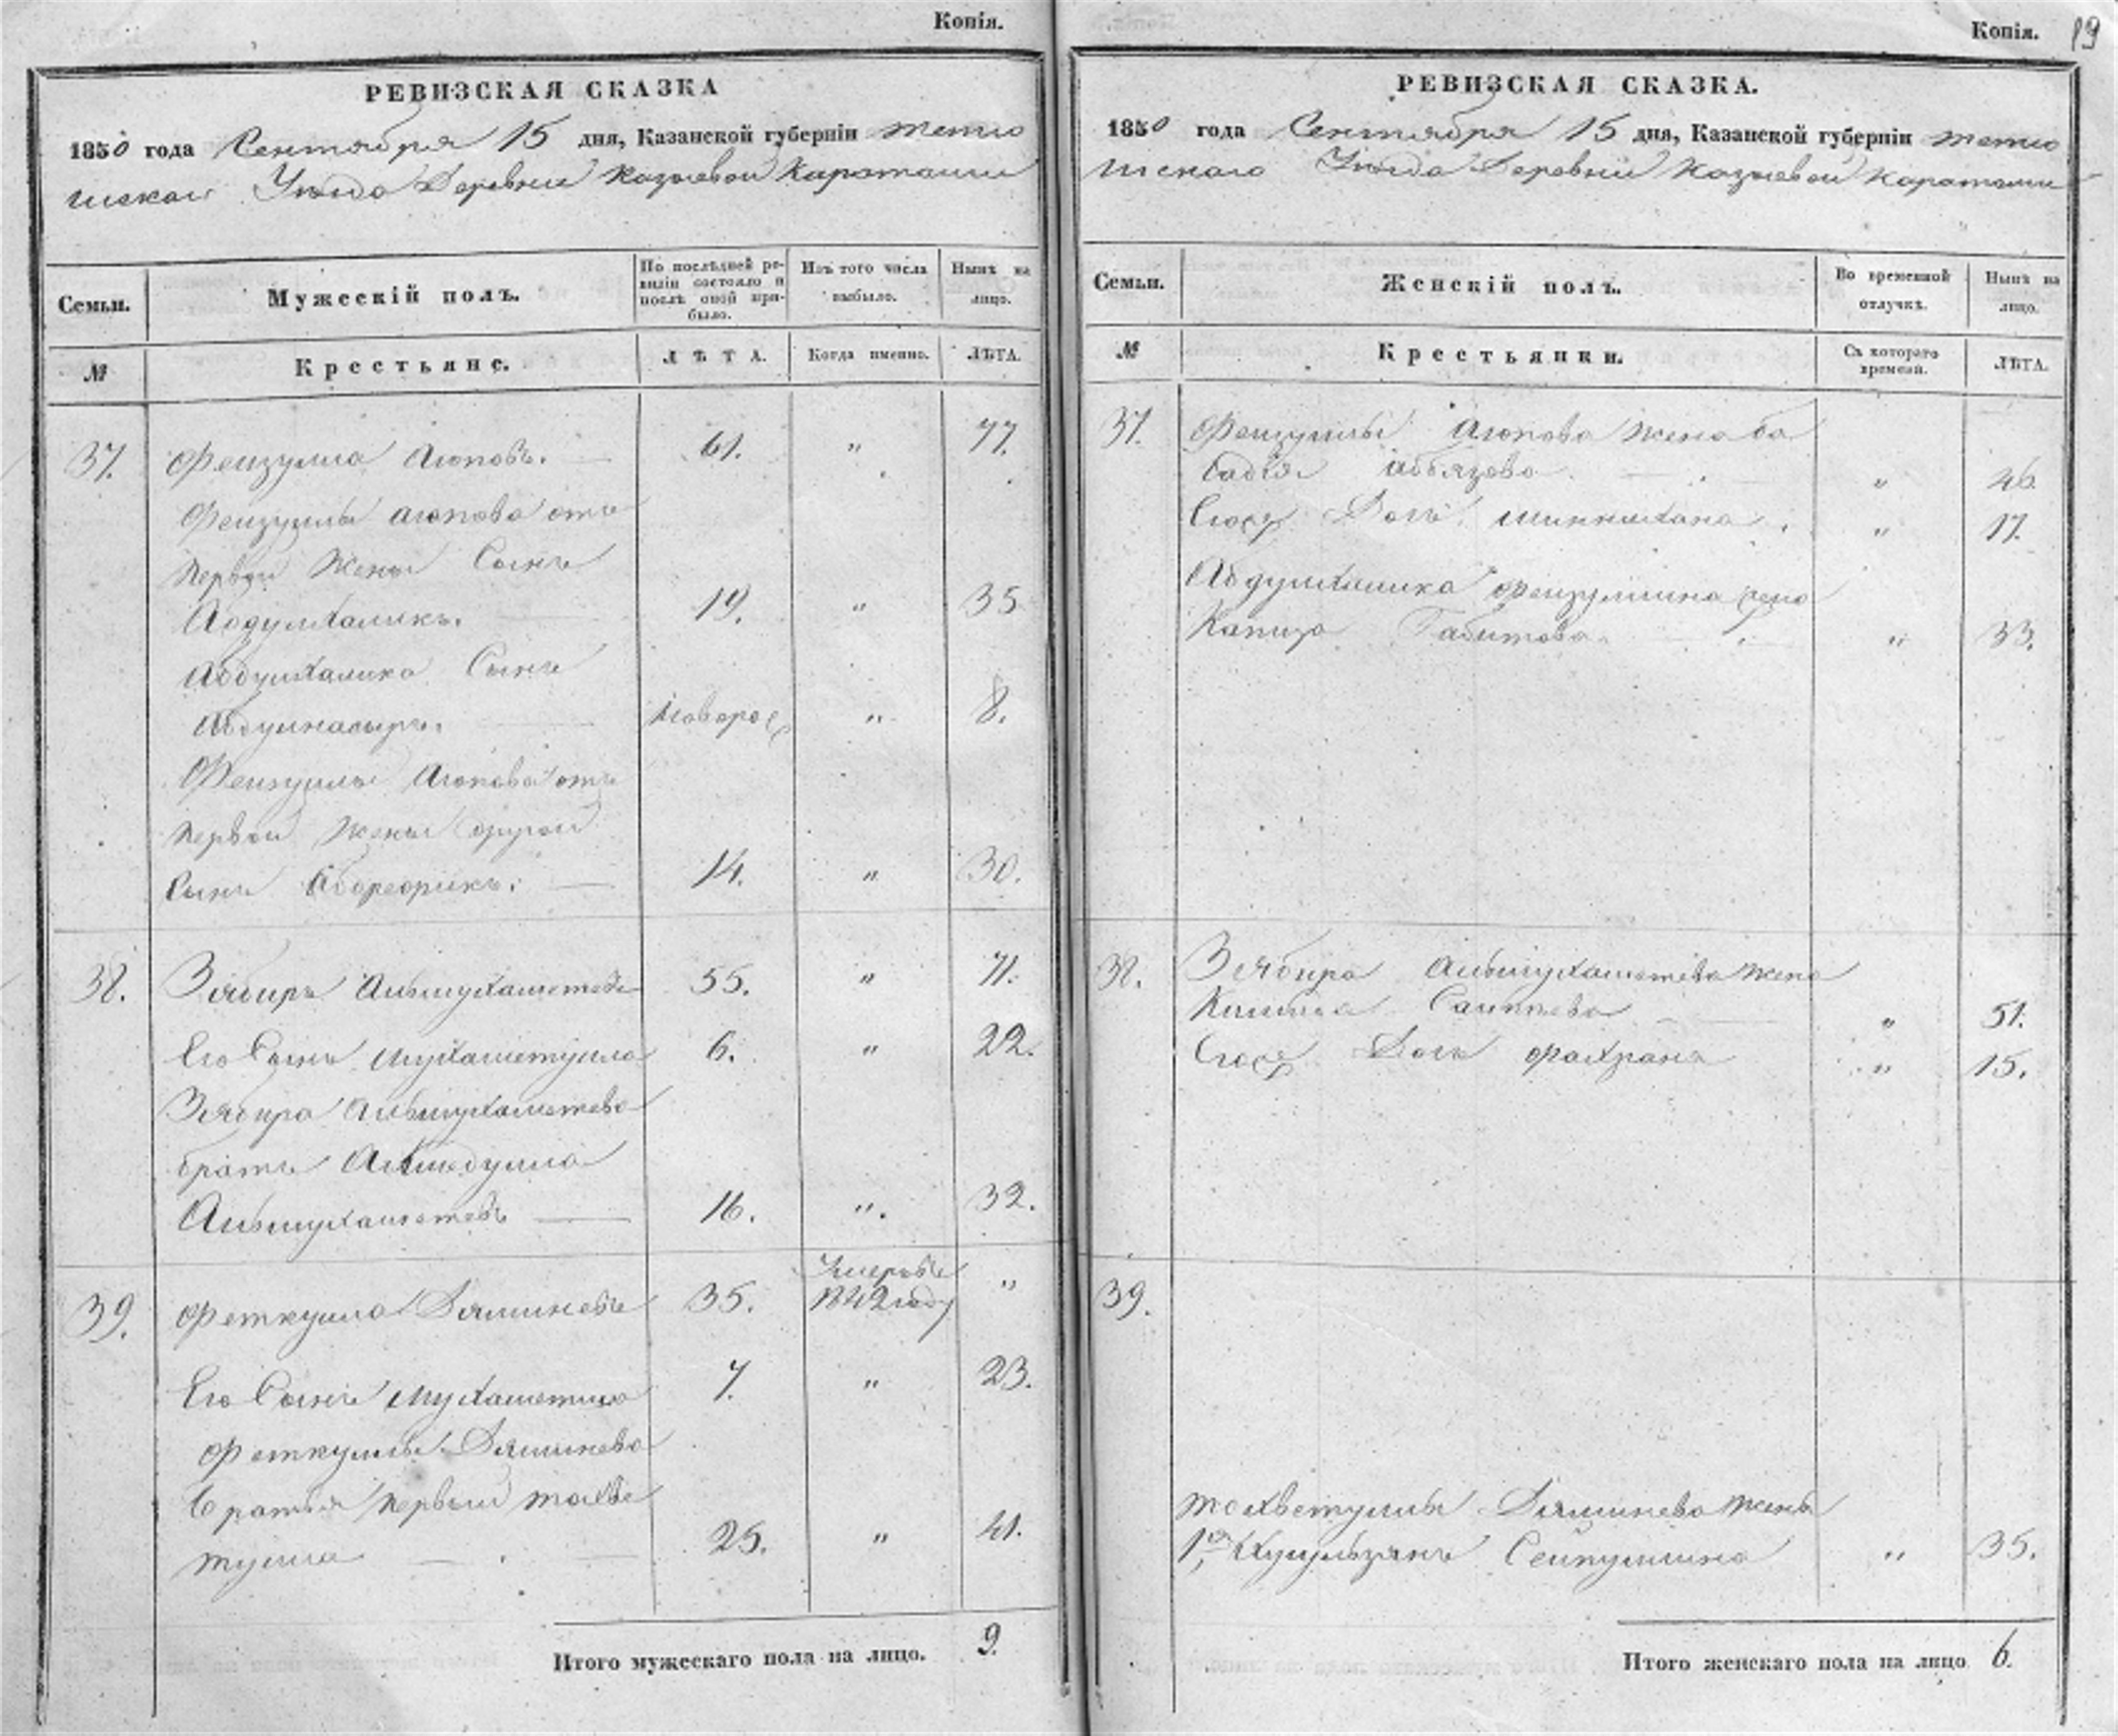 Копія.
РЕВИЗСКАЯ СКАЗКА
1850 года Сентября 15 дня, Казанской губерніи тетю
шскаго Уѣзда Деревни Козяевой Караташи
Семьи.
Мужескій полъ.
По послѣдней ре-
визіи состояло и
послѣ оной при-
было.
Изъ того числа
выбыло.
Нынѣ на
лицо.
№
Крестьяне.
ЛѢТА.
Когда именно.
ЛѢТА.
37. Феизулла Аюповъ. 61. " 77.
Феизуллы Аюпова отъ
первой жены Сынъ
Абдулхаликъ. 19. " 35
Абдулхалика Сынъ
Абдулнасыръ. новорож " 8.
Феизуллы Аюпова отъ
первой жены другой
Сынъ 14. " 30.
38. Зябиръ Альмухаметевъ 55. " 71.
Его Сынъ Мухаметулла 6. " 22.
Зябира Альмухаметева
братъ
Альмухаметевъ 16. " 32.
39. Феткулла Дялишевъ 35. Умеръ въ 1842 году "
Его Сынъ 7. " 23.
Феткуллы Дялишева
братья первый Тохве
тулла 25. " 41.
Итого мужескаго пола на лицо. 9.
Копія. 19
РЕВИЗСКАЯ СКАЗКА.
1850 года Сентября 15 дня, Казанской губерніи тетю
шскаго Уѣзда Деревни Козяевой Караташи
Семьи.
Женскій полъ.
Во временной
отлучкѣ.
Нынѣ на
лицо.
№
Крестьянки.
Съ котораго
времени.
ЛѢТА.
37. Феизуллы Аюпова жена Ба
бадія Абдязова " 46.
Дочь " 17.
Абдулхалика Феизуллина жена
Габитова " 33.
38. Зябира Альмухаметева жена
" 51.
Дочь Фахрана " 15.
39.
Тохветуллы Дялишева жены
1я Сейпуллина " 35.
Итого женскаго пола на лицо 6.